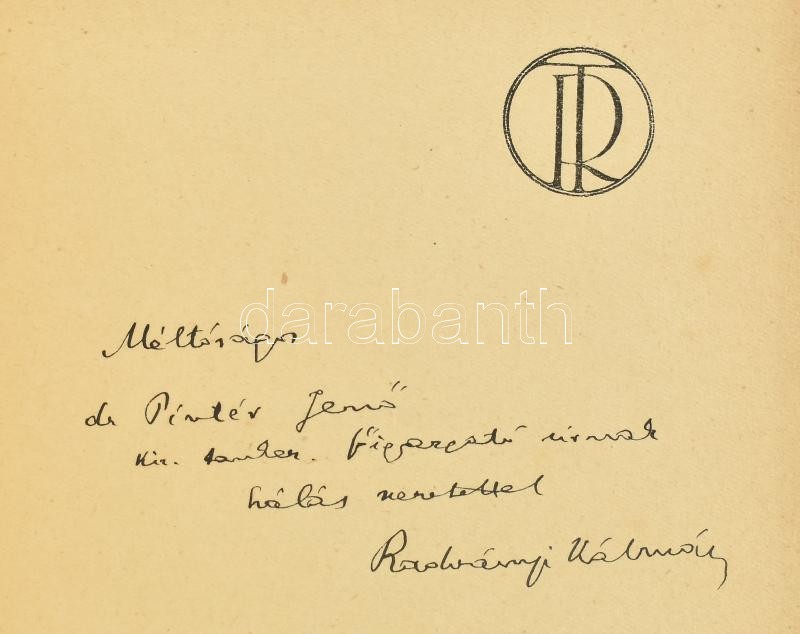 TR
darabanth
Méltóságos
dr Pintér Jenő
kir. tanker. főigazgató úrnak
hálás szeretettel
Radványi Kálmán